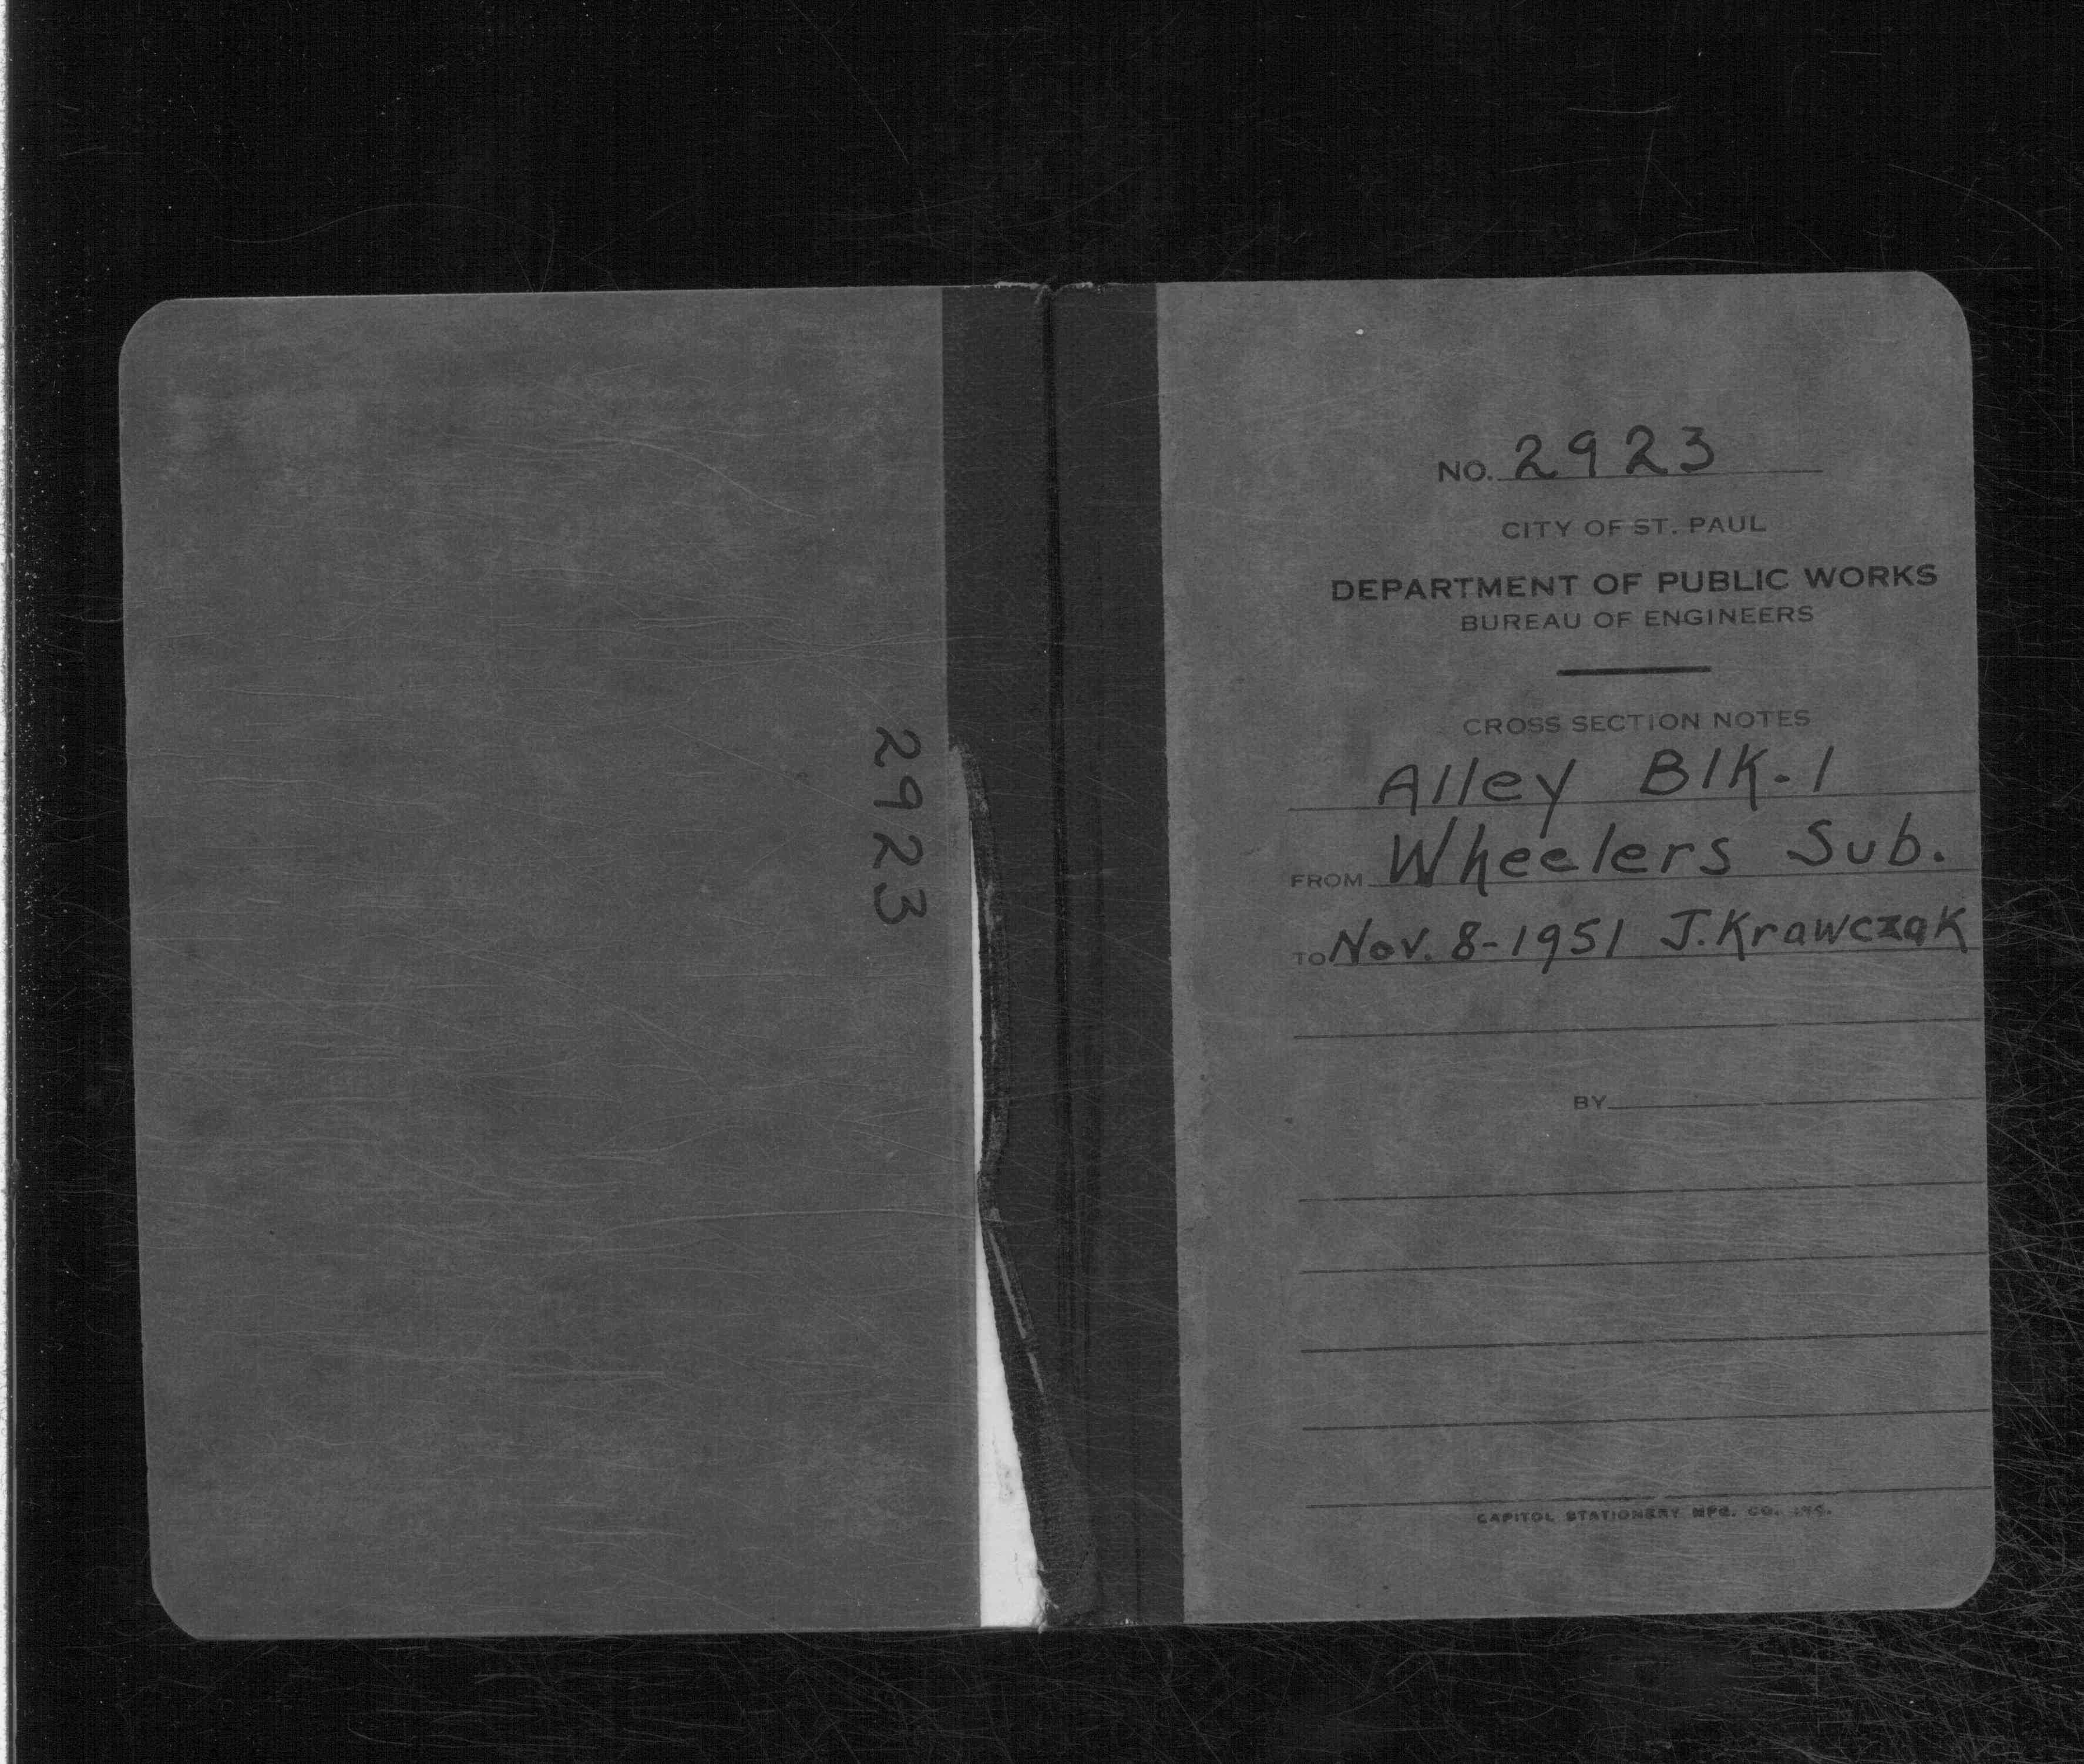 2923
NO. 2923
CITY OF ST. PAUL
DEPARTMENT OF PUBLIC WORKS
BUREAU OF ENGINEERS
CROSS SECTION NOTES
Alley Blk-1
FROM Wheelers Sub.
TO Nov. 8-1951 J. Krawczak
BY
CAPITOL STATIONERY MFG. CO. INC.